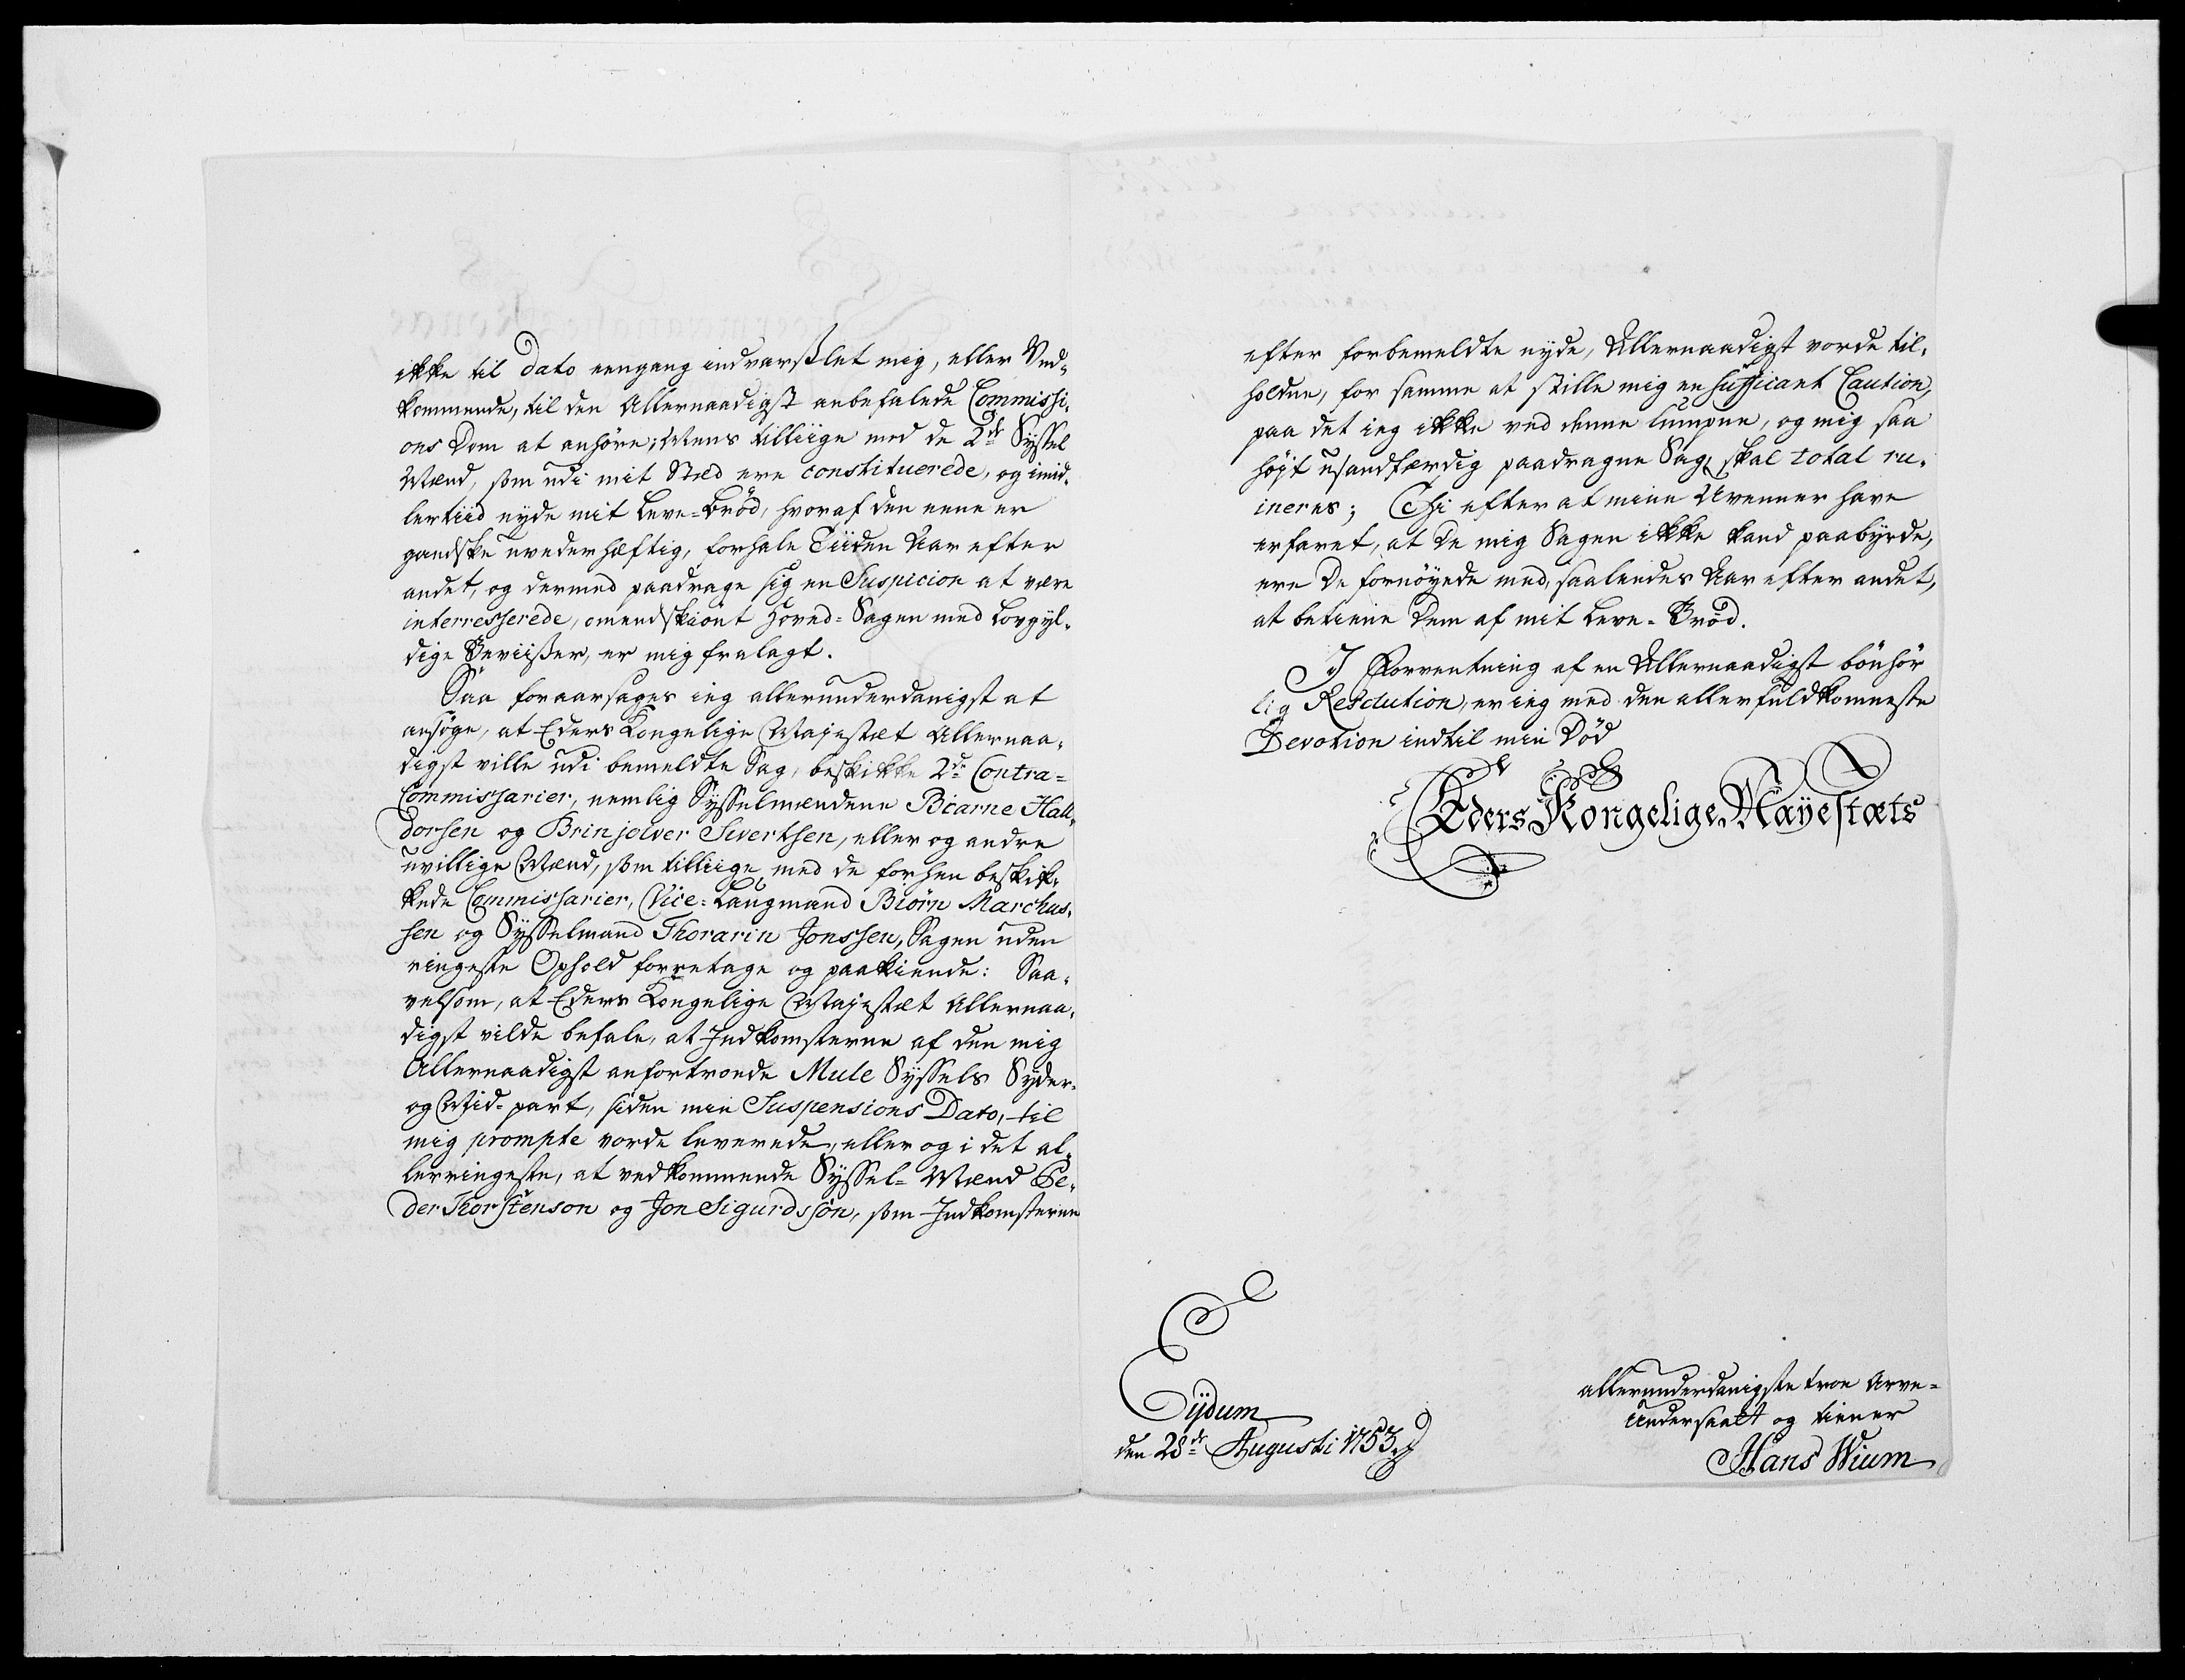 ikke til Dato eengang indvarslet mig, eller Ved-
kommende, til den Allernaadigst anbefalede Commissi-
ons Dom at anhöre; Mens tilliige med de 2de Syssel
Mænd, som udi mit Sted ere constituerede, og imid-
lertiid nyde mit Leve-Bröd, hvoraf den eene er
gandske uvederhæftig, forhale Tiiden Aar efter
andet, og dermed paadrage sig en Suspicion at være
interresserede, omendskiönt Hoved-Sagen med Lovgyl-
dige Beviißer, er mig fralagt.
Saa foraarsages ieg allerunderdanigst at
ansöge, at Eders Kongelige Majestæt Allernaa-
digst ville udi bemeldte Sag, beskikke 2de Contra-
Commissarier, nemlig Sysselmændene Biarne Hall-
dorsen og Brinjolver Sivertsen, eller og andre
uvillige Mænd, som tilliige med de forhen beskik-
kede Commissarier, Vice-Laugmand Biörn Marchus-
sen og Sysselmand Thorarin Jonssen, Sagen uden
ringeste Ophold forretage og paakiende: Saa-
velsom, at Eders Kongelige Majestæt Allernaa-
digst vilde befale, at Indkomsterne af den mig
Allernaadigst anfortroede Mule Syssels Syder-
og Mid-part, siden min Suspensions Dato, til
mig prompte vorde leverede, eller og i det al-
lerringeste, at vedkommende Syssel-Mænd Pe-
der Thorstenson og Jon Sigurdssön, som Indkomsterne
efter forbemeldte nyde, Allernaadigst vorde til-
holdne, for samme at stille mig en suffiicant Caution,
paa det ieg ikke ved denne lumpne, og mig saa
höyt usandfærdig paadragne Sag, skal total ru-
ineres; Thi efter at mine Uvenner have
erfaret, at de mig Sagen ikke kand paabyrde,
ere De fornöyede med, saaledes Aar efter andet,
at betiene dem af mit Leve-Bröd.
I Forventning af en Allernaadigst bönhör
lig Resolution, er ieg med den allerfuldkomneste
Devotion indtil min Död
Eders Kongelige Mayestæts
Eÿdum
den 28de Augusti 1753
allerunderdanigste troe Arve-
Undersaatt og tiener
Hans Wium